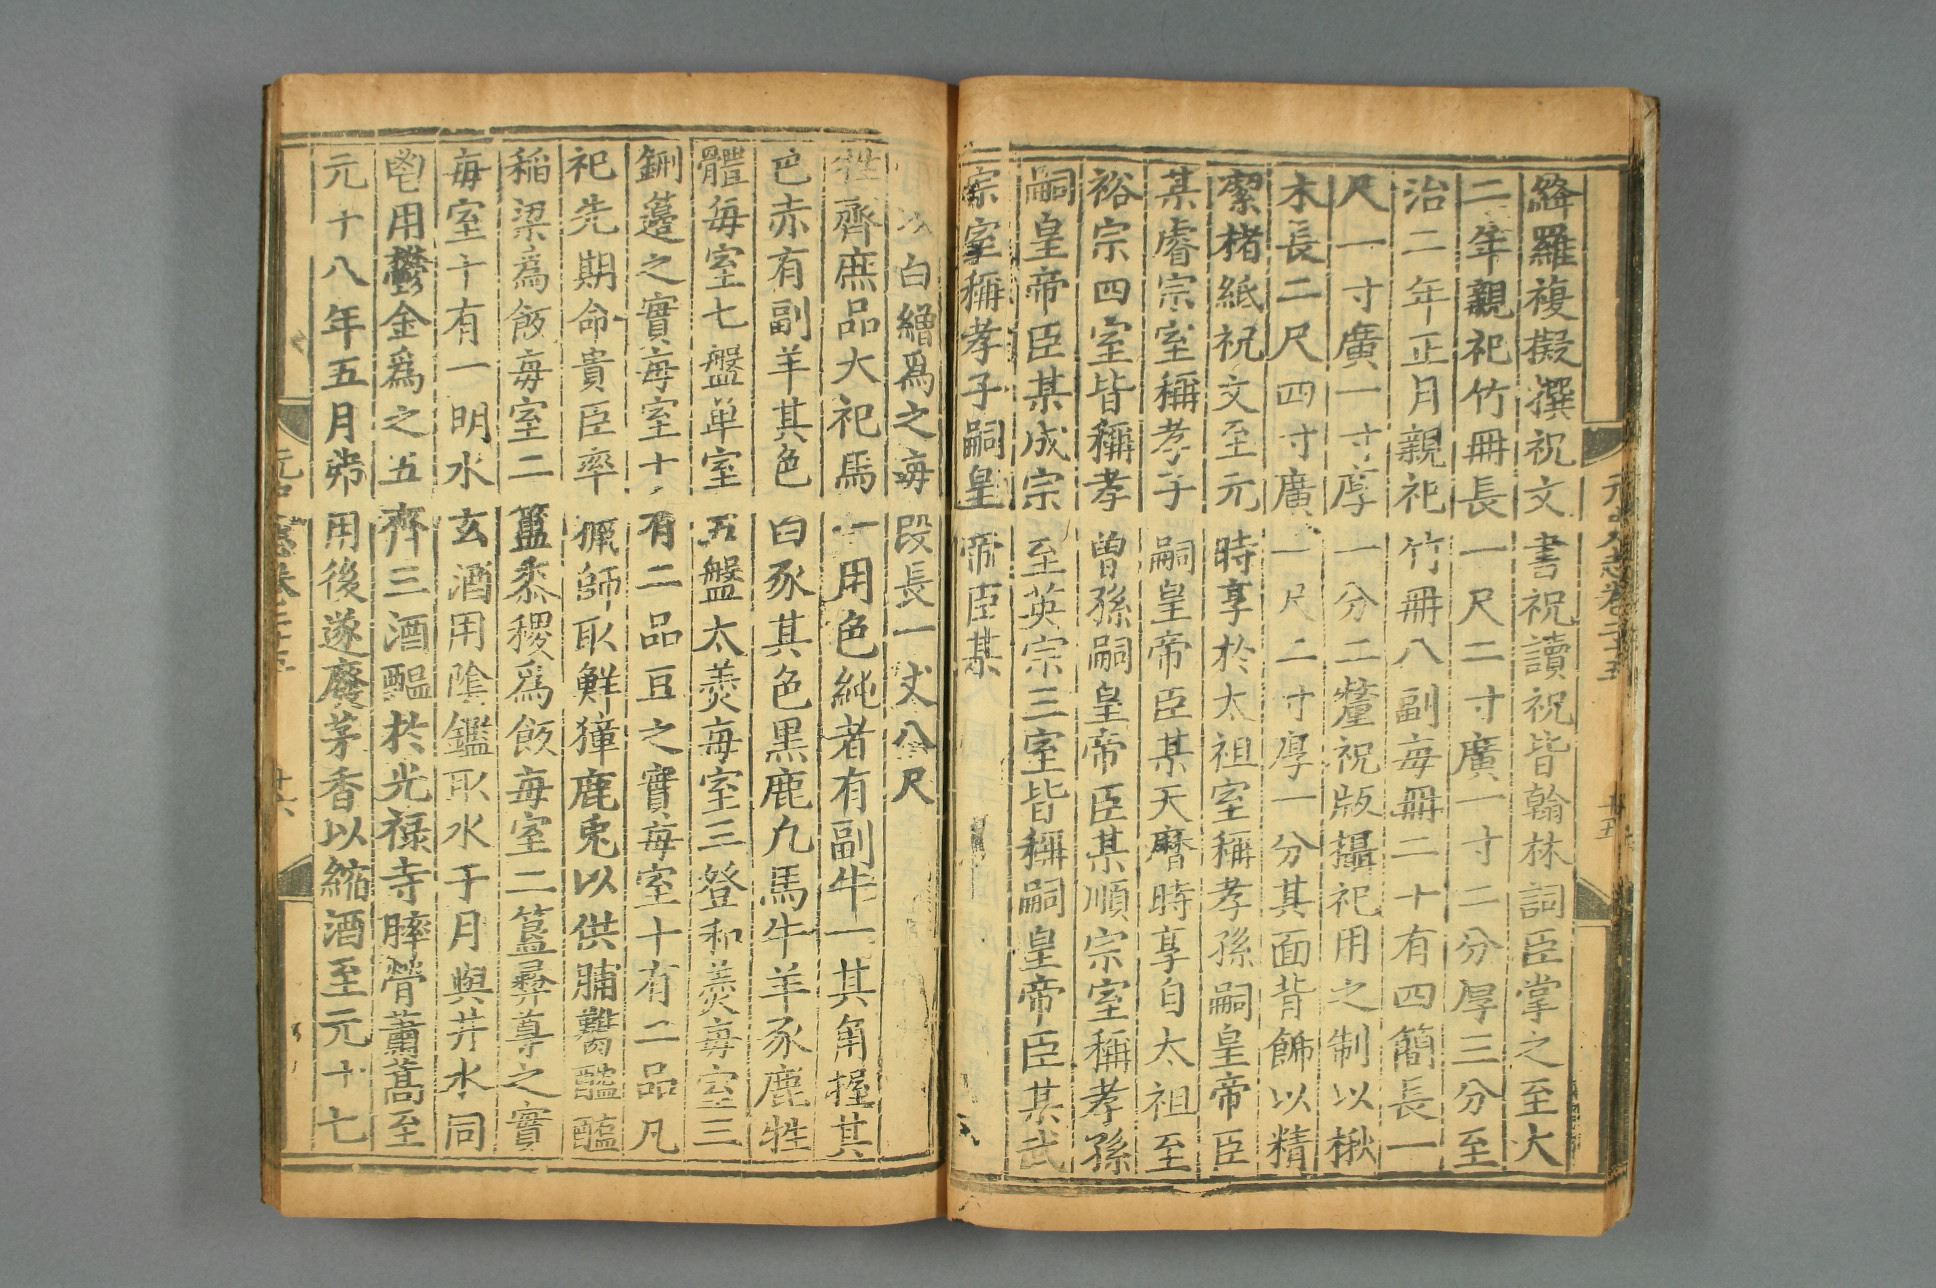 絳羅複擬撰祝文書祝讀祝皆翰林詞臣掌之至大
二年親祀竹冊長一尺二寸廣一寸二分厚三分至
治二年正月親祀竹冊八副每冊二十有四簡長一
尺一寸廣一寸厚一分二釐祝版攝祀用之制以楸
木長二尺四寸廣一尺二寸厚一分其面背飾以精
潔楮紙祝文至元時享於太祖室稱孝孫嗣皇帝臣
某睿宗室稱孝子嗣皇帝臣某天曆時享自太祖至
裕宗四室皆稱孝曾孫嗣皇帝臣某順宗室稱孝孫
嗣皇帝臣某成宗至英宗三室皆稱嗣皇帝臣某武
宗室稱孝子嗣皇帝臣某
元史志卷二十五
廿五
以白繒爲之每段長一丈八尺
牲齊庶品大祀馬一用色純者有副牛一其角握其
色赤有副羊其色白豕其色黑鹿凡馬牛羊豕鹿牲
體每室七盤單室五盤太羹每室三登和羹每室三
鉶籩之實每室十有二品豆之實每室十有二品凡
祀先期命貴臣率獵師取鮮獐鹿兔以供脯臡醓醢
稻粱爲飯每室二簠黍稷爲飯每室二簋彝尊之實
每室十有一明水玄酒用陰鑑取水于月與井水同
鬯用鬱金爲之五齊三酒醞於光祿寺膟膋蕭蒿至
元十八年五月弗用後遂廢茅香以縮酒至元十七
元史志卷二十五
廿六